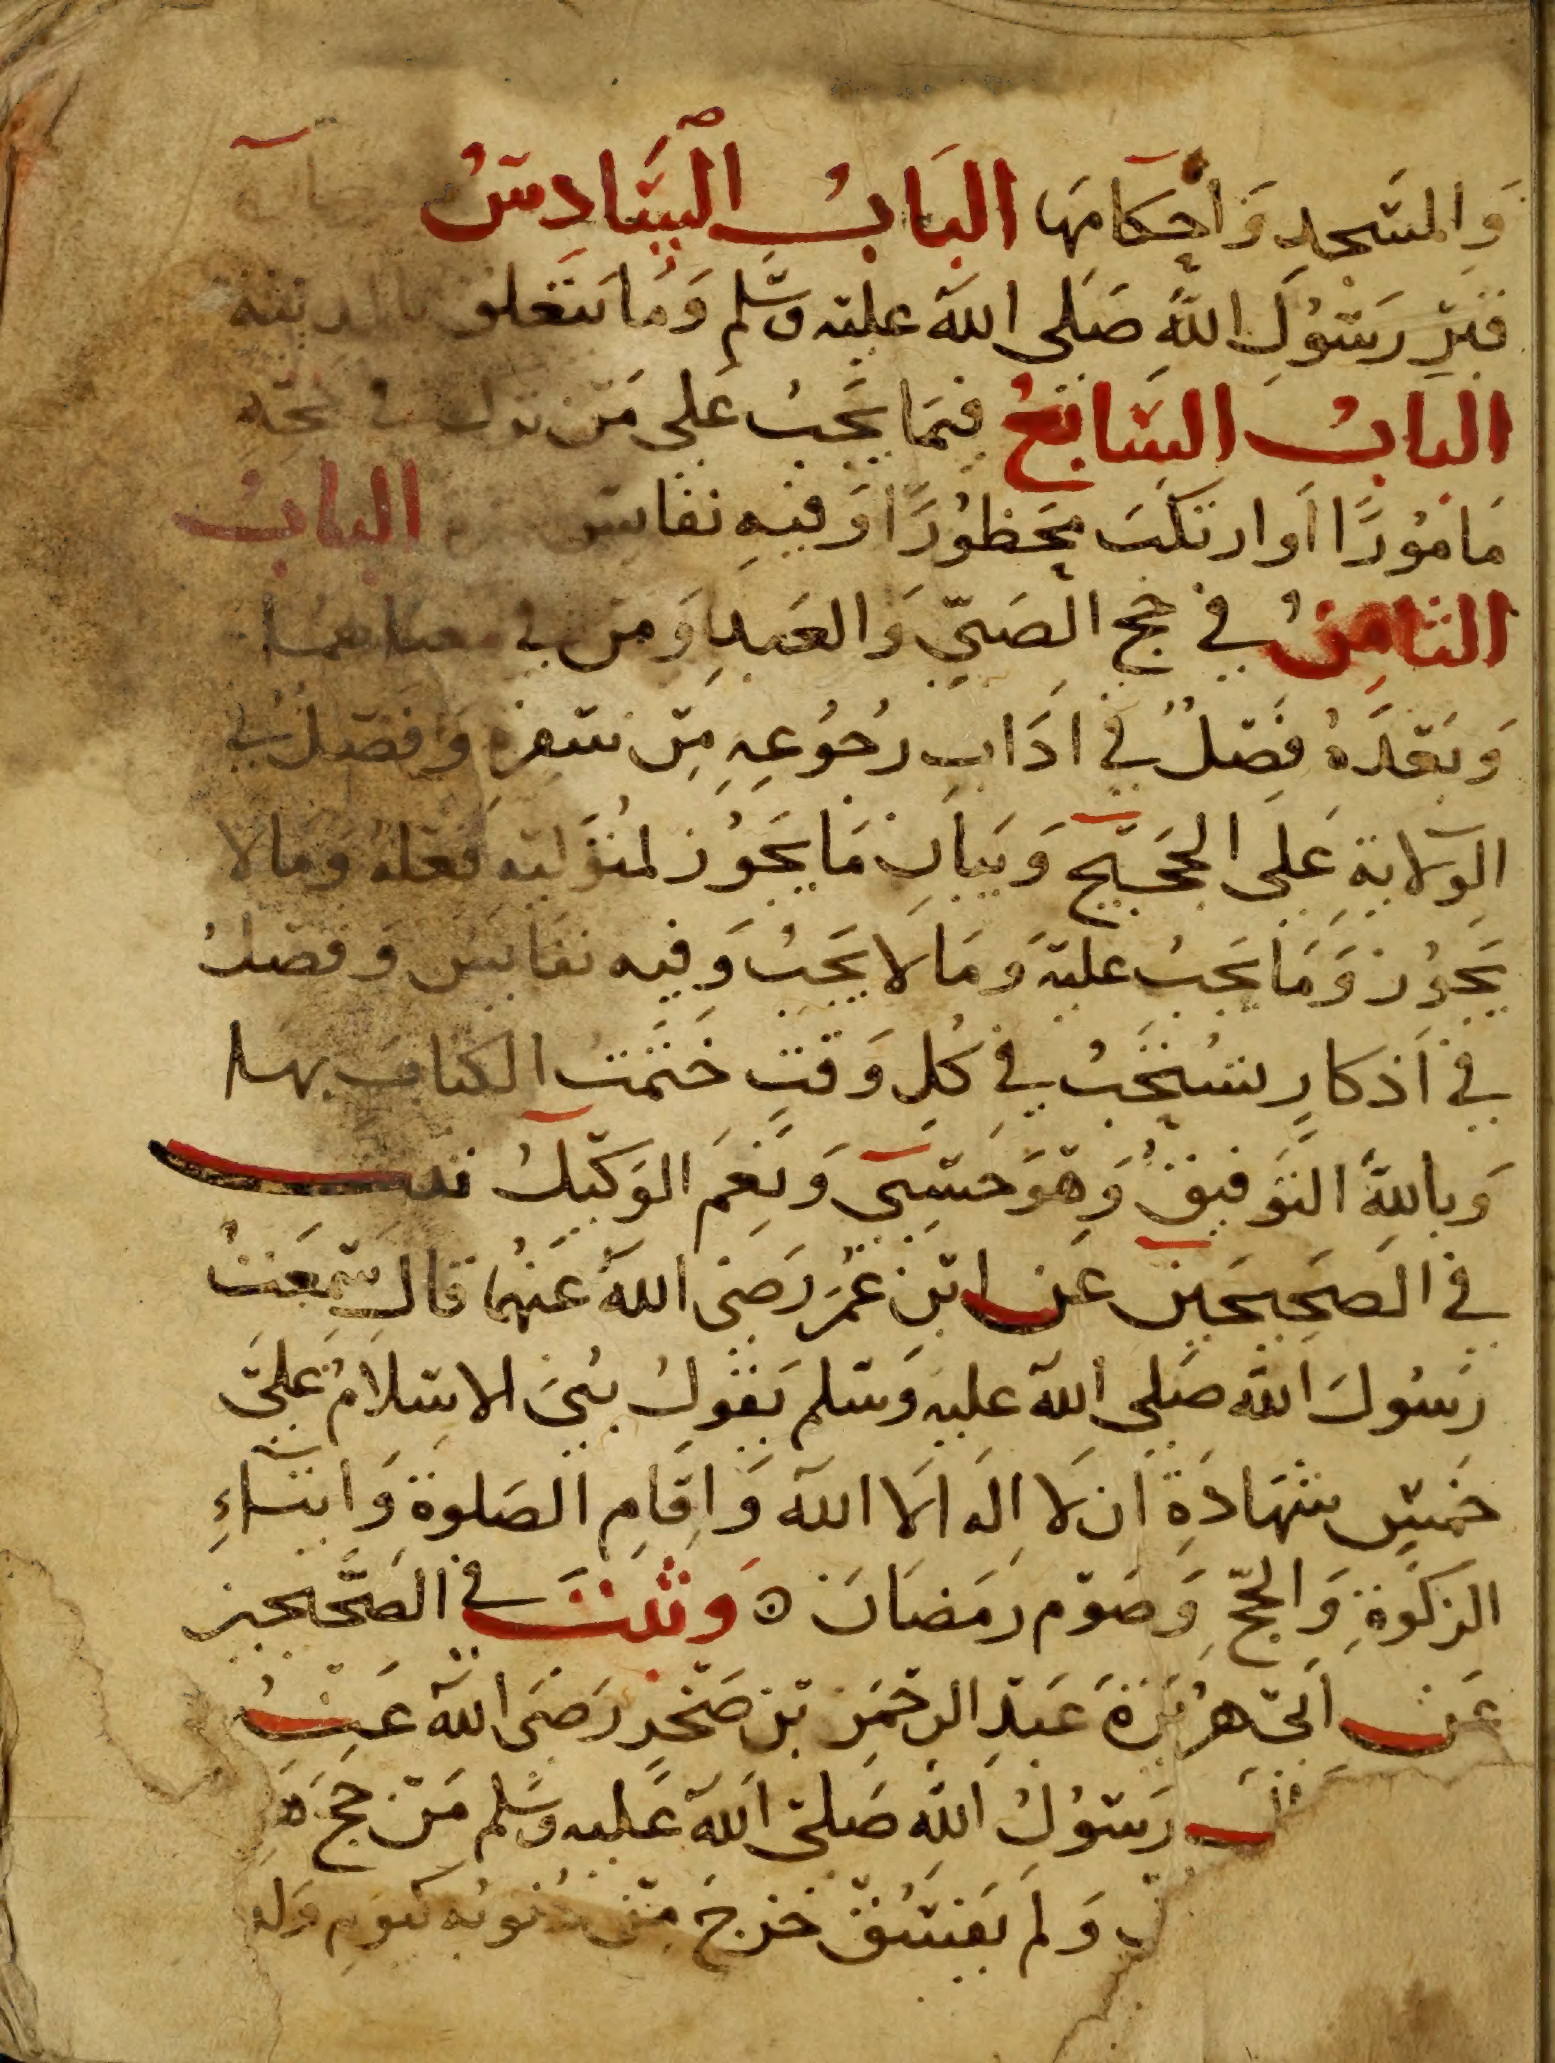 وَالمَسْجِدِ وَأحكامِهَا البَابُ السَّادِسُ
قَبْرِ رَسُولِ اللهِ صَلى الله عليْه وسَّلم وَمَا يتعَلق بالمدينة
البابُ السَّابْعُ فيمَا يَجبُ عَلى مَنْ ترك في حجّه
مَامُورًا اَو ارتكَبَ محَظُورًا وَفيهِ نفائس البابُ
الثامِنُ في حَج الصَبيّ وَالعَبدِ وَمَن في معناهما
وَبَعْدَهُ فَصْلٌ في ادَابِ رُجُوُعِهِ مِنْ سَفرِهِ وَفصْلٌ في
الوِلَايةِ عَلى الحجَيْج وَبيَانِ مَا يَجُوُز لمُتَوَليه فعلهُ وَمَا لا
يَجوُز وَمَا يَجبُ عليْه وَمَا لا يَجبُ وَفيه نفَايسُ وَفصْلُ
في اَذكارٍ تسُتحَبُ في كُلِ وَقتٍ خَتَمْتُ الكتابَ بها
وَباللهِ التوَفيقُ وَهْوَ حَسْبِي وَنِعمَ الوَكيْلُ
في الصَحِيحَيْن عَن ابْن عُمَر رَضي الله عَنهُما قال سَمعَتُ
رَسُولَ الله صَلى الله عليْه وَسْلم يَقوُلُ بُنيَ الاسْلَامُ عَليَ
خَمْسٍ شهَادَةِ ان لا اِله اَلا الله وَاِقَامِ الصَلوة وَايتاءِ
الزكَوةِ وَالحجّ وَصَوْم رمَضانَ ه وَثبتَ في الصَحيحين
عَن اَبيْ هرُيْرَةَ عَبْدِ الرحْمَن بْن صَخرٍ رَضيَ الله عَنهُ
رَسْوُلُ اللهِ صَلىْ الله عَليه وسَّلم مَنْ حَجَ
وَلَم يَفسُقْ خَرجَ مِنْ ذُنوُبه كيَوْمِ وَلدَ